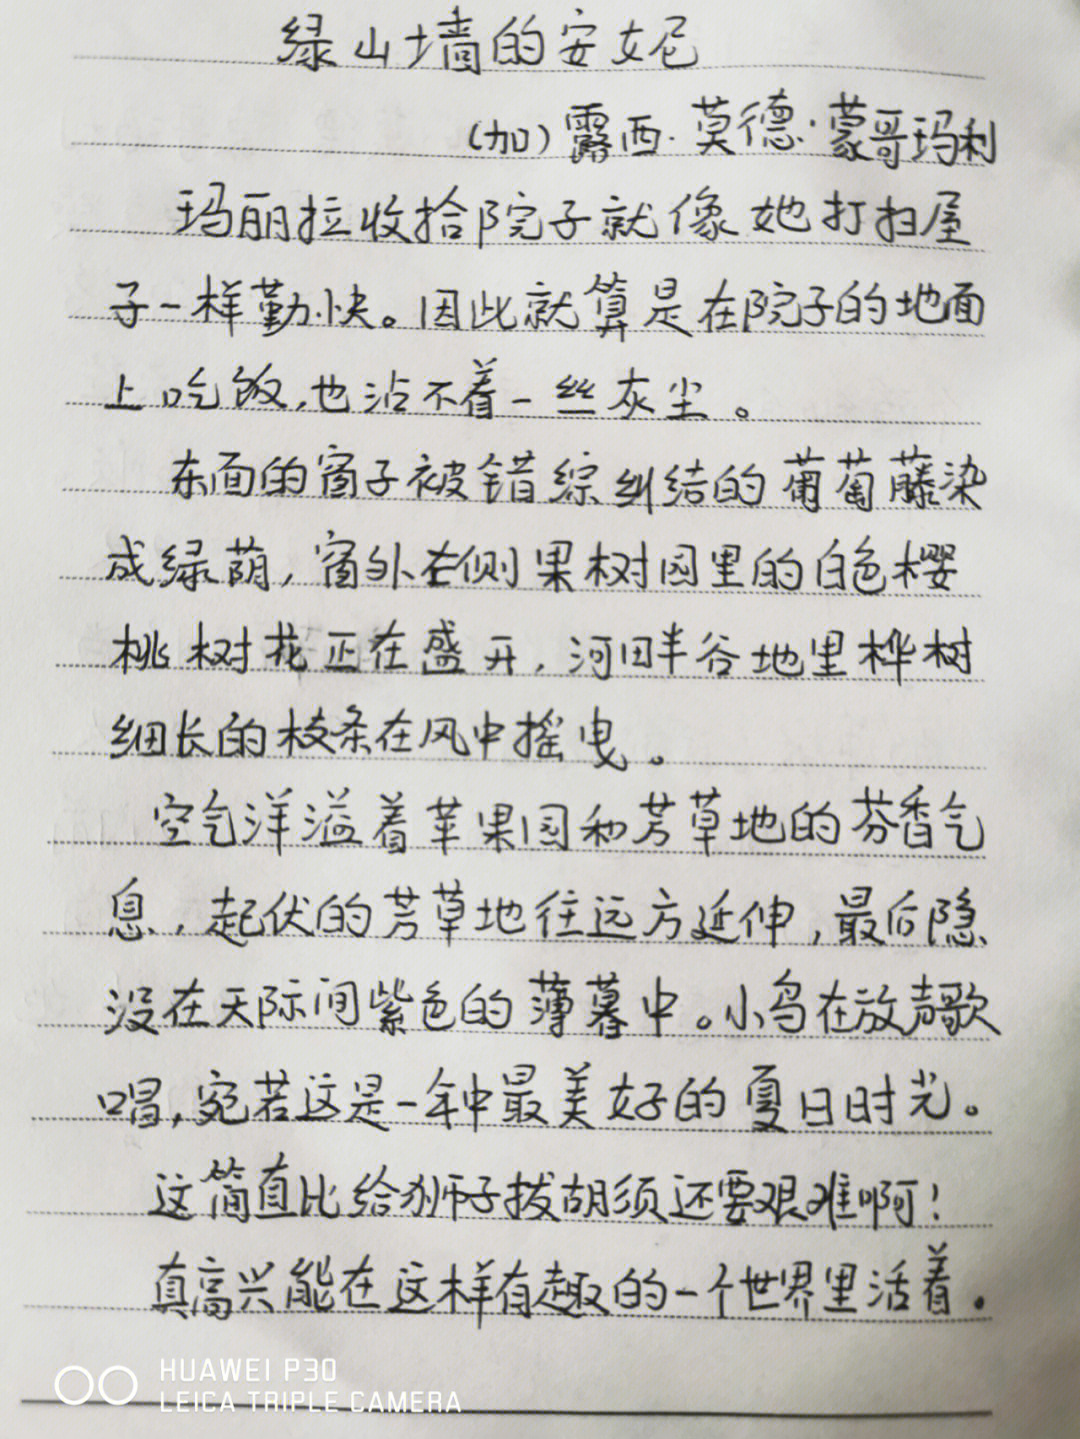 绿山墙的安妮
(加)露西·莫德·蒙哥玛利
玛丽拉收拾院子就像她打扫屋
子一样勤快。因此就算是在院子的地面
上吃饭,也沾不着一丝灰尘。
东面的窗子被错综纠结的葡萄藤染
成绿荫,窗外右侧果树园里的白色樱
桃树花正在盛开,河畔谷地里桦树
细长的枝条在风中摇曳。
空气洋溢着苹果园和芳草地的芬香气
息,起伏的芳草地往远方延伸,最后隐
没在天际间紫色的薄暮中。小鸟在放声歌
唱,宛若这是一年中最美好的夏日时光。
这简直比给狮子拔胡须还要艰难啊!
真高兴能在这样有趣的一个世界里活着。
HUAWEI P30
LEICA TRIPLE CAMERA